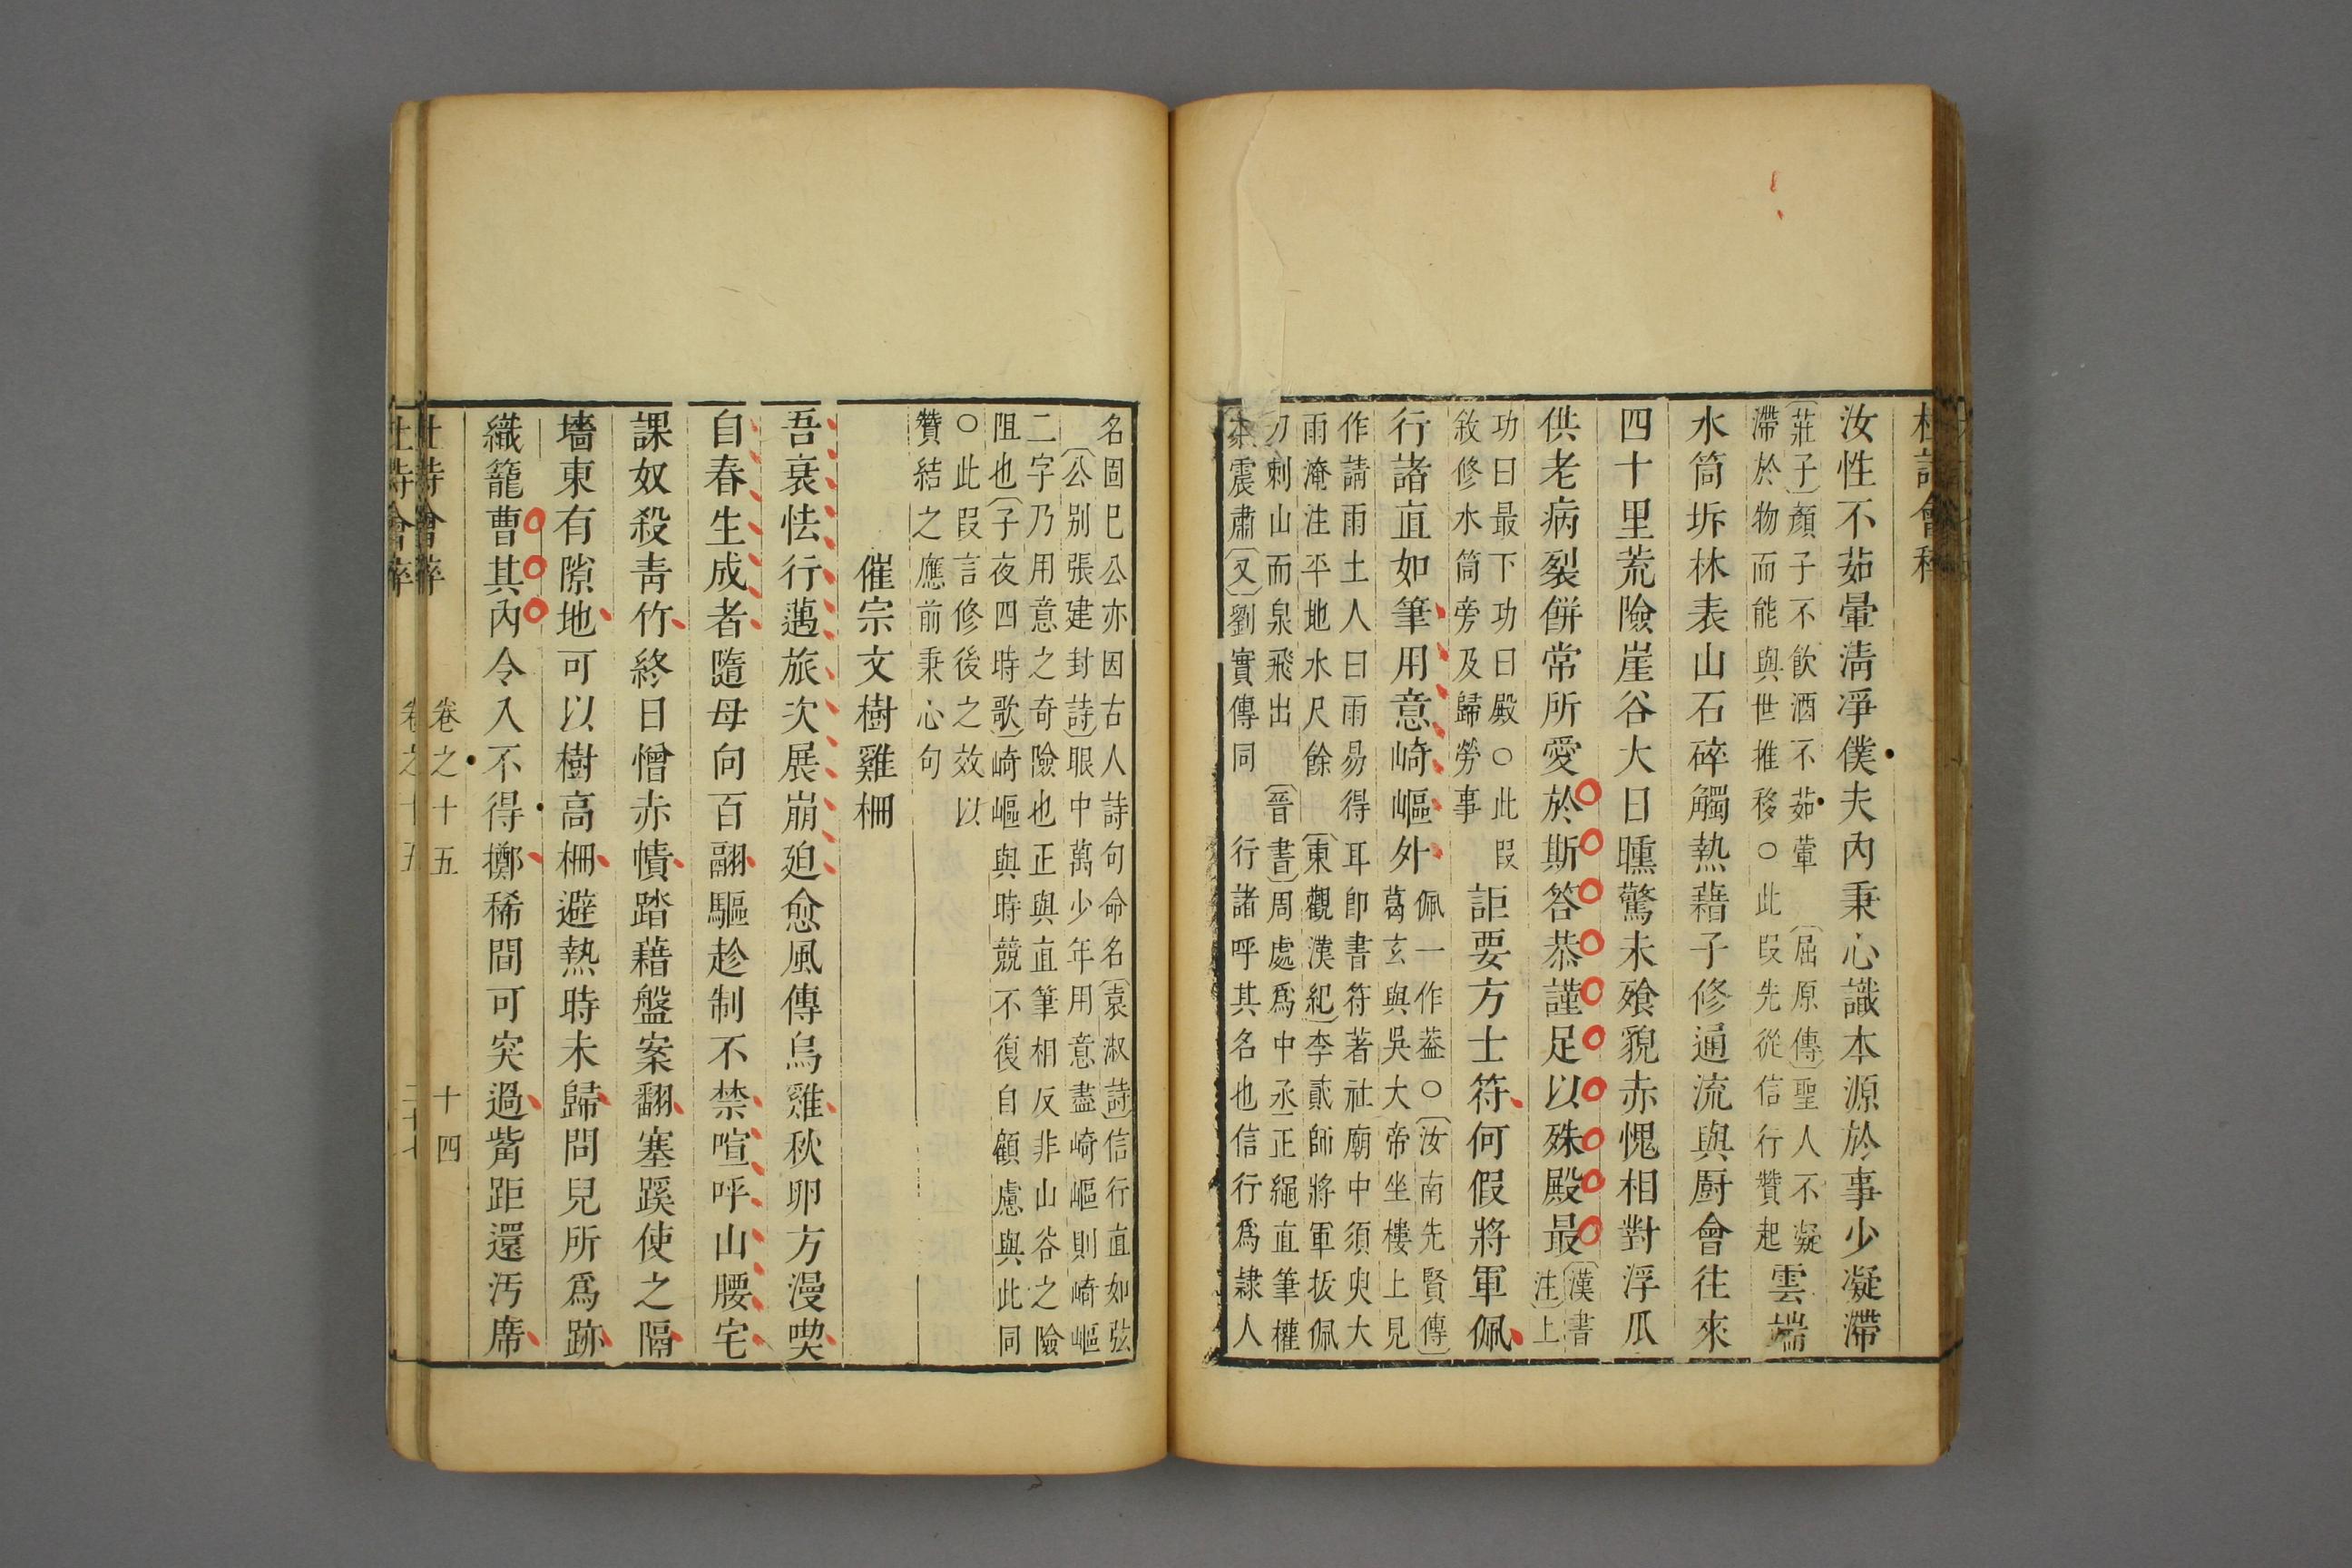 杜詩會稡
汝性不茹葷淸凈僕夫內秉心識本源於事少凝滯
〔莊子〕顏子不飮酒不茹葷〔屈原傳〕聖人不凝
滯於物而能與世推移○此叚先從信行贊起
雲端
水筒坼林表山石碎觸熱藉子修通流與厨會往來
四十里荒險崖谷大日曛驚未飱貌赤愧相對浮瓜
供老病裂餅常所愛於斯答恭謹足以殊殿最
〔漢書
注〕上
功曰最下功曰殿○此叚
敘修水筒旁及歸勞事
詎要方士符何假將軍佩
行諸直如筆用意崎嶇外
佩一作葢○〔汝南先賢傳〕
葛玄與吳大帝坐樓上見
作請雨土人曰雨易得耳卽書符著社廟中須臾大
雨淹注平地水尺餘〔東觀漢紀〕李貳師將軍拔佩
刀刺山而泉飛出〔晉書〕周處爲中丞正繩直筆權
震肅〔又〕劉實傳同行諸呼其名也信行爲隷人
名固巳公亦因古人詩句命名〔袁淑詩〕信行直如弦
〔公别張建封詩〕眼中萬少年用意盡崎嶇則崎嶇
二字乃用意之奇險也正與直筆相反非山谷之險
阻也〔子夜四時歌〕崎嶇與時競不復自顧慮與此同
○此叚言修後之效以
贊結之應前秉心句
催宗文樹雞柵
吾衰怯行邁旅次展崩廹愈風傳烏雞秋卵方漫喫
自春生成者隨母向百翮驅趁制不禁喧呼山腰宅
課奴殺靑竹終日憎赤幘踏藉盤案翻塞蹊使之隔
墻東有隙地可以樹高柵避熱時未歸問兒所爲跡
織籠曹其內令入不得擲稀間可突過觜距還汚席
杜詩會稡 卷之十五 十四